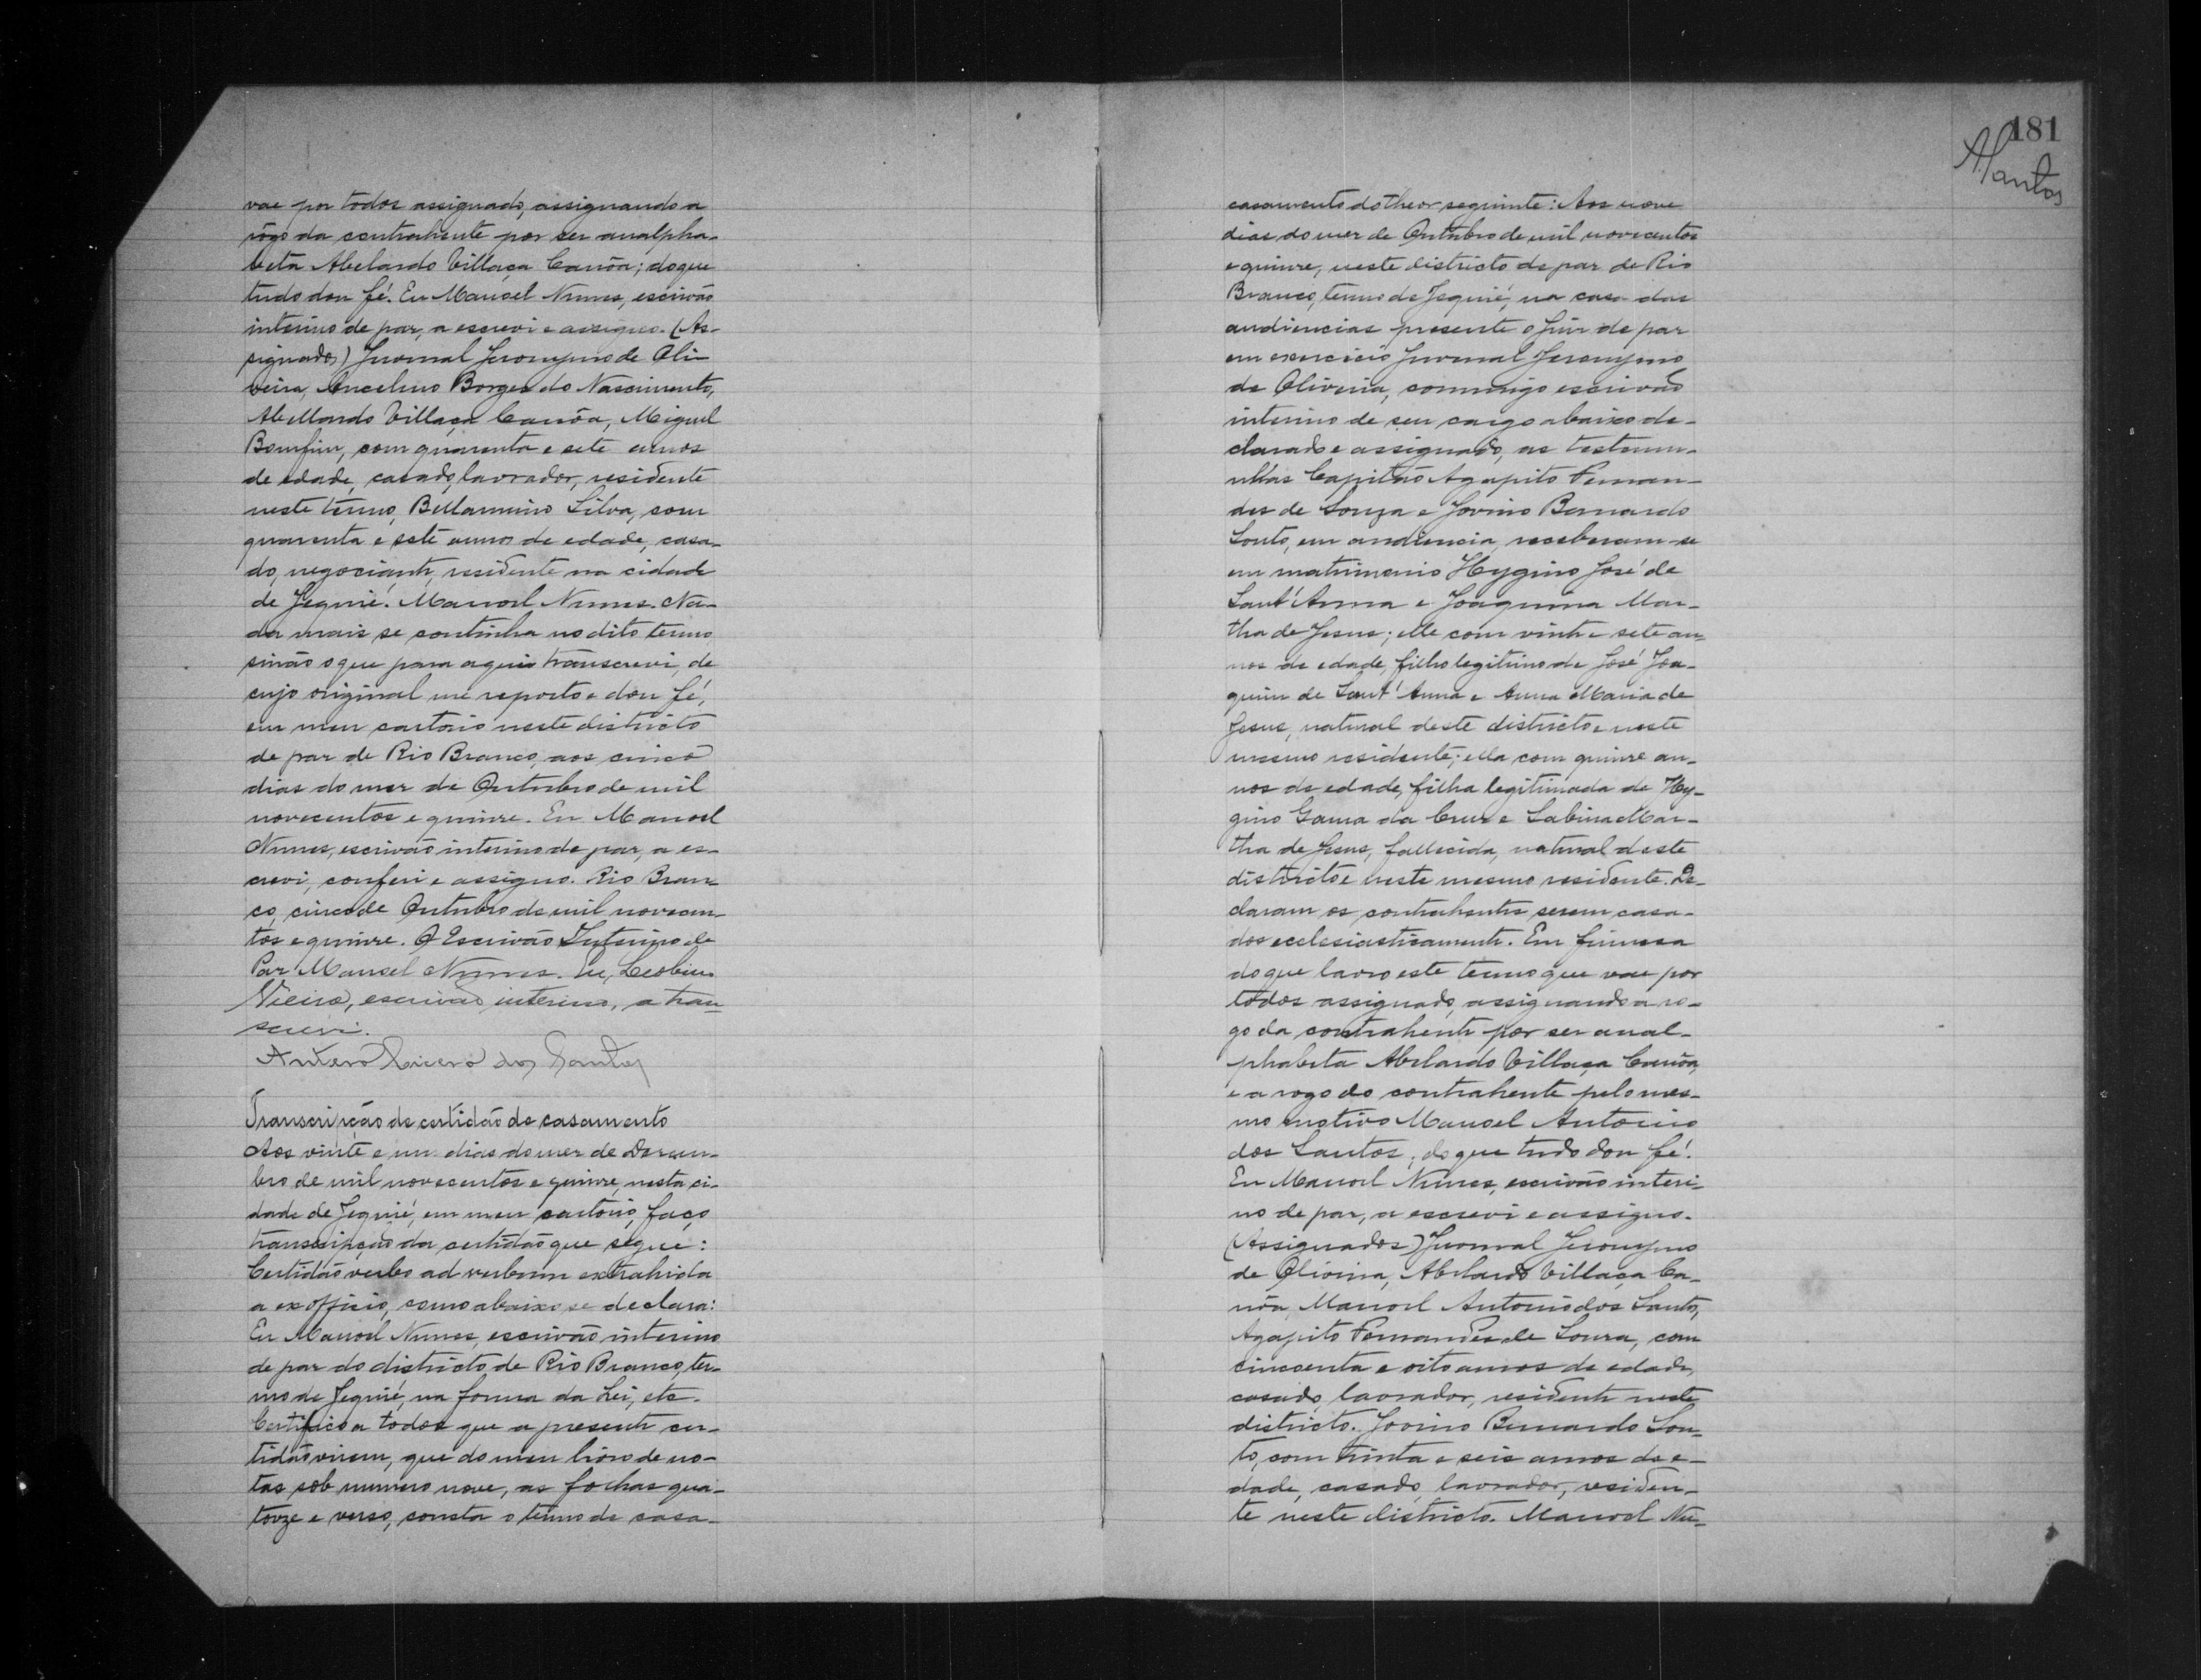 vae por todos assignado, assignando a
rôgo da contrahente por ser analpha-
beta Abelardo Villaça Canôa; do que
tudo dou fé. Eu Manoel Nunes, escrivão
interino de paz, a escrevi e assigno. (As-
signados) Juvenal Jeronymo de Oli-
veira, Ancelino Borges do Nascimento,
Abellardo Villaça Canôa, Miguel
Bomfim, com quarenta e sete annos
de edade, casado, lavrador, residente
neste termo, Bellarmino Silva, com
quarenta e sete annos de edade, casa-
do, negociante, residente na cidade
de Jequié. Manoel Nunes. Na-
da mais se continha no dito termo
sinão o que para aqui transcrevi, de
cujo original me reporto e dou fé,
em meu cartorio neste districto
de paz de Rio Branco, aos cinco
dias do mez de Outubro de mil
novecentos e quinze. Eu Manoel
Nunes, escrivão interino de paz, a es-
crevi, conferi e assigno. Rio Bran-
co, cinco de Outubro de mil novecen-
tos e quinze. O Escrivão Interino de
Paz Manoel Nunes. Eu, Leobino
Vieira, escrivão interino, a tran-
screvi.
Antero Cicero dos Santos
Transcripção de certidão de casamento
Aos vinte e um dias do mez de Dezem-
bro de mil novecentos e quinze, nesta ci-
dade de Jequié, em meu cartorio, faço
transcripção da certidão que segue:
Certidão verbo ad verbum extrahida
a ex officio, como abaixo se declara:
Eu Manoel Nunes, escrivão interino
de paz do districto de Rio Branco, ter-
mo de Jequié, na forma da Lei, etc.
Certifico a todos que a presente cer-
tidão virem, que do meu livro de no-
tas sob numero nove, as folhas qua-
torze e verso, consta o termo de casa-
181
A. Santos
casamento do theor seguinte: Aos nove
dias do mez de Outubro de mil novecentos
e quinze, neste districto de paz de Rio
Branco, termo de Jequié, na casa das
audiencias presente o Juiz de paz
em exercicio Juvenal Jeronymo
de Oliveira, commigo escrivão
interino de seu cargo abaixo de-
clarado e assignado, as testemu-
nhas Capitão Agapito Fernan-
des de Souza e Jovino Bernardo
Souto, em audiencia, receberam-se
em matrimonio Hygino José de
Sant'Anna e Joaquina Mar-
tha de Jesus; elle com vinte e sete an-
nos de edade, filho legitimo de José Joa-
quim de Sant'Anna e Anna Maria de
Jesus, natural deste districto e neste
mesmo residente; ella com quinze an-
nos de edade, filha legitimada de Hy-
gino Gama da Cruz e Sabina Mar-
tha de Jesus, fallecida, natural deste
districto e neste mesmo residente. De-
claram os contrahentes serem casa-
dos ecclesiasticamente. Em firmeza
do que lavro este termo que vae por
todos assignado, assignando a ro-
go da contrahente por ser anal-
phabeta Abelardo Villaça Canôa,
e a rogo do contrahente pelo mes-
mo motivo Manoel Antonio
dos Santos; do que tudo dou fé.
Eu Manoel Nunes, escrivão interi-
no de paz, a escrevi e assigno.
(Assignados) Juvenal Jeronymo
de Oliveira, Abelardo Villaça Ca-
nôa, Manoel Antonio dos Santos,
Agapito Fernandes de Souza, com
cincoenta e oito annos de edade,
casado, lavrador, residente neste
districto. Jovino Bernardo Sou-
to, com trinta e seis annos de e-
dade, casado, lavrador, residen-
te neste districto. Manoel Nu-